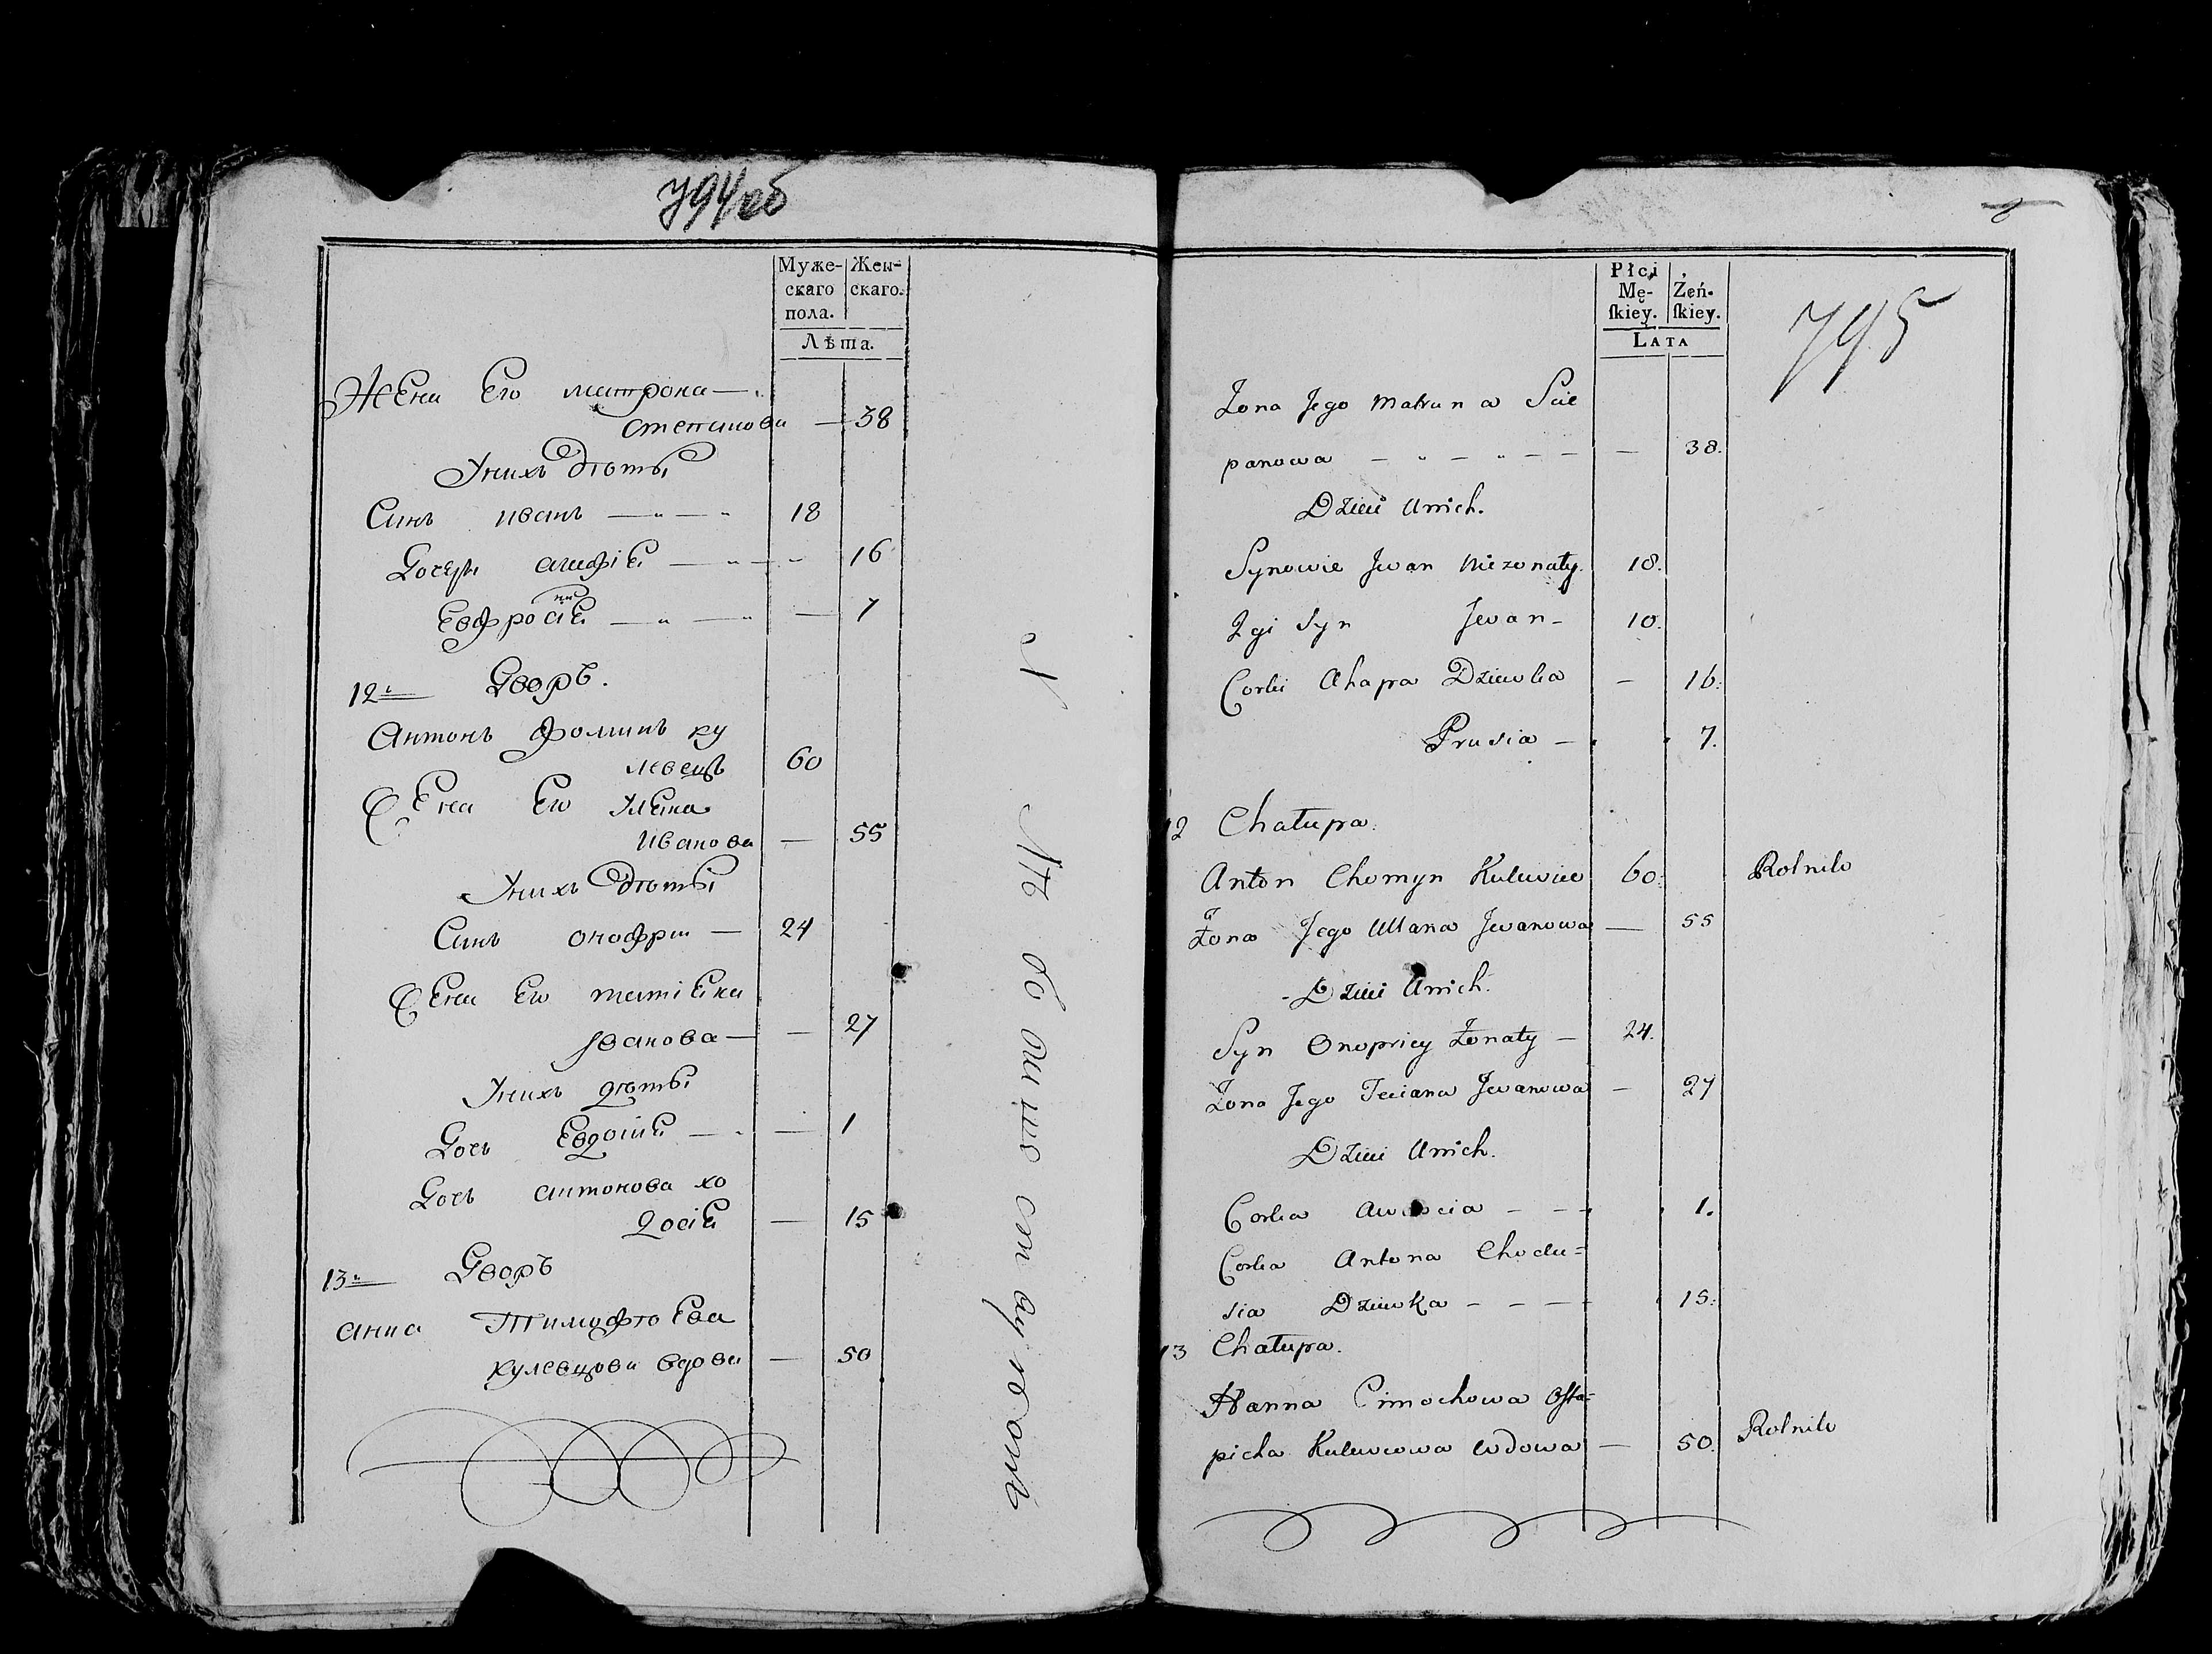 794об
Муже- Жен-
скаго скаго.
пола.
Лѣта.
Жена Его матрона —
степанова — 38
Унихъ дѣты
Синъ иванъ — 18
Дочери агафіа — 16
Евфросіа — 7
ни
12й Дворъ.
Антонъ фоминъ ку
левецъ 60
Жена Его Уляна
Иванова — 55
Унихъ дѣты
Синъ онофри — 24
Жена Его татіяна
Иванова — — 27
Унихъ дѣты
Дочъ Евдокиа — — 1
Дочъ антонова хо
досіа — 15
13й Дворъ
анна Тимофѣева
кулевцова вдова — 50
795
Płci Żeń-
Mę- ſkiey.
ſkiey.
LATA
Żona Jego Matruna Scie
panowa — — — — 38.
Dzieci Unich.
Synowie Jwan Niezonaty. 18.
2gi Syn Jwan - 10.
Corki Ahapa Dziewka — 16.
Prusia — 7.
12 Chałupa.
Anton Chomyn Kulewiec 60. Rolnik
Żona Jego Ullana Jwanowa — 55
Dzieci Unich.
Syn Onopriey Żonaty — 24.
Żona Jego Teciana Jwanowa — 27
Dzieci Unich.
Corka — — 1.
Corka Antona Chodu=
sia Dziewka - - - 15.
13 Chałupa.
Hanna Cimochowa Osta=
picha Kulewcowa Wdowa — 50. Rolnik